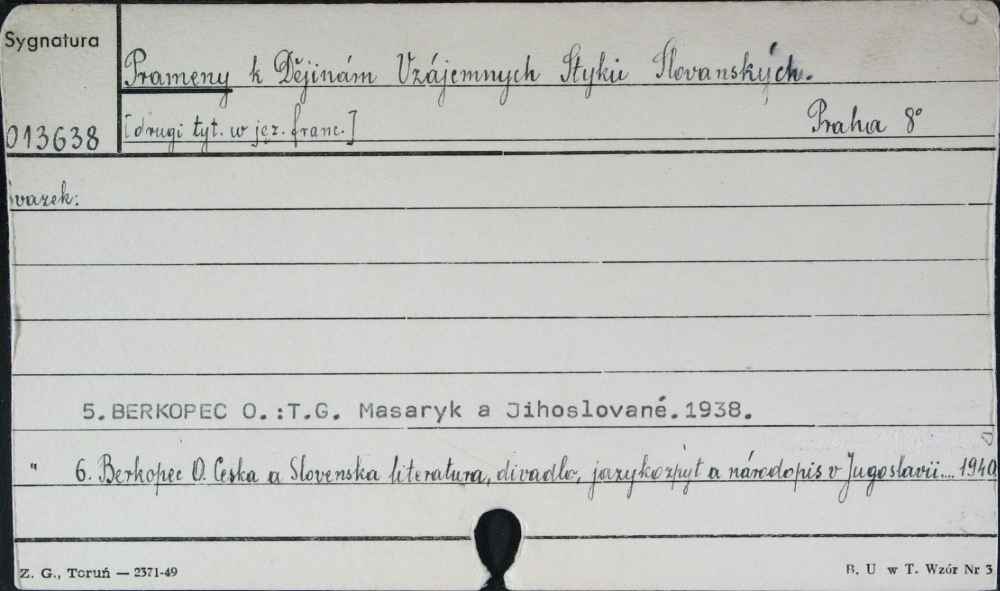 Sygnatura
Prameny k Dějinám Vzájemnych Styků Slovanských.
013638 [drugi tyt. w jęz. franc.] Praha 8°
svazek:
5. BERKOPEC O.:T.G. Masaryk a Jihoslované.1938.
" 6. Berkopec O. Česka a Slovenska literatura, divadlo, jazykozpyt a národopis v Jugoslavii.... 1940
Z. G., Toruń — 2371-49 B. U w T. Wzór Nr 3